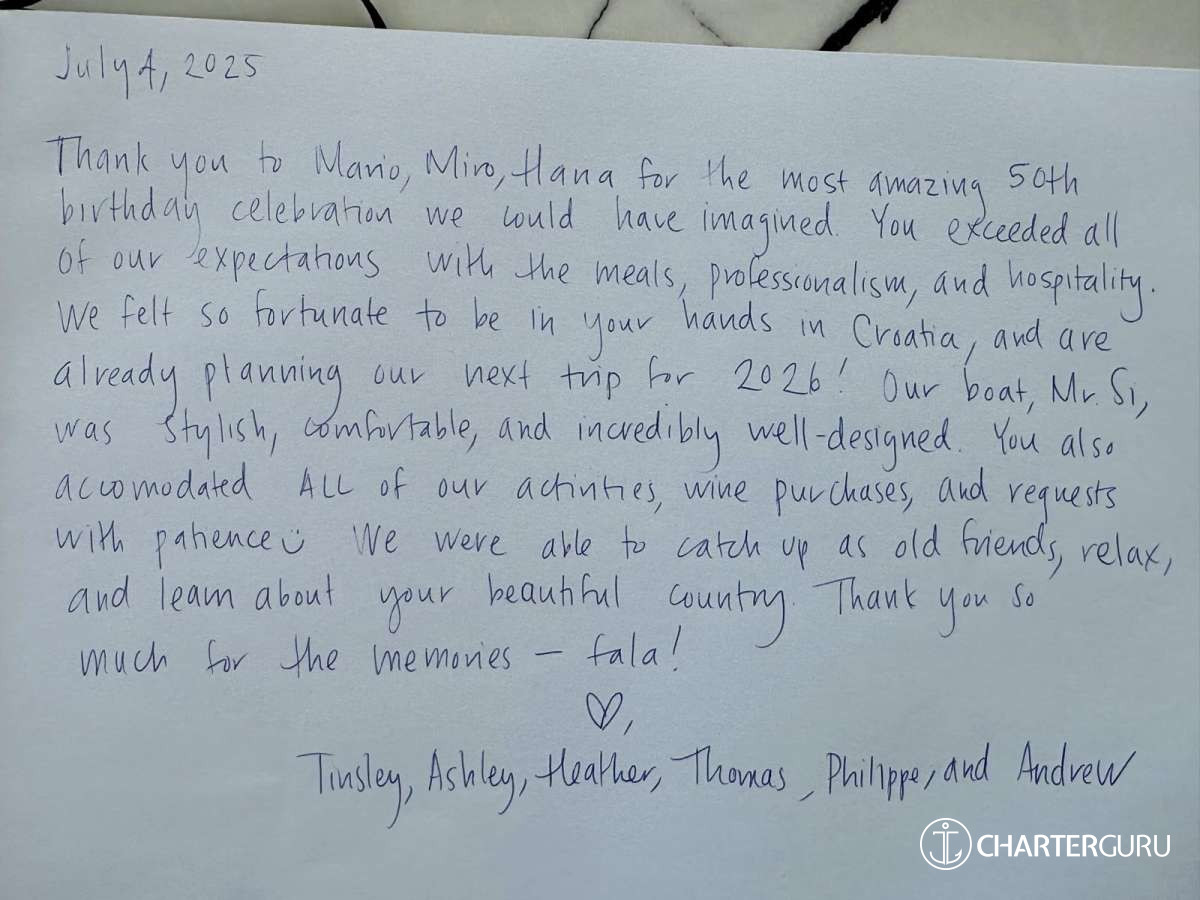 July 4, 2025
Thank you to Mario, Miro, Hana for the most amazing 50th
birthday celebration we could have imagined. You exceeded all
of our expectations with the meals, professionalism, and hospitality.
We felt so fortunate to be in your hands in Croatia, and are
already planning our next trip for 2026! Our boat, Mr. Si,
was stylish, comfortable, and incredibly well-designed. You also
accomodated ALL of our activities, wine purchases, and requests
with patience☺ We were able to catch up as old friends, relax,
and learn about your beautiful country. Thank you so
much for the memories — fala!
♡,
Tinsley, Ashley, Heather, Thomas, Philippe, and Andrew
CHARTERGURU